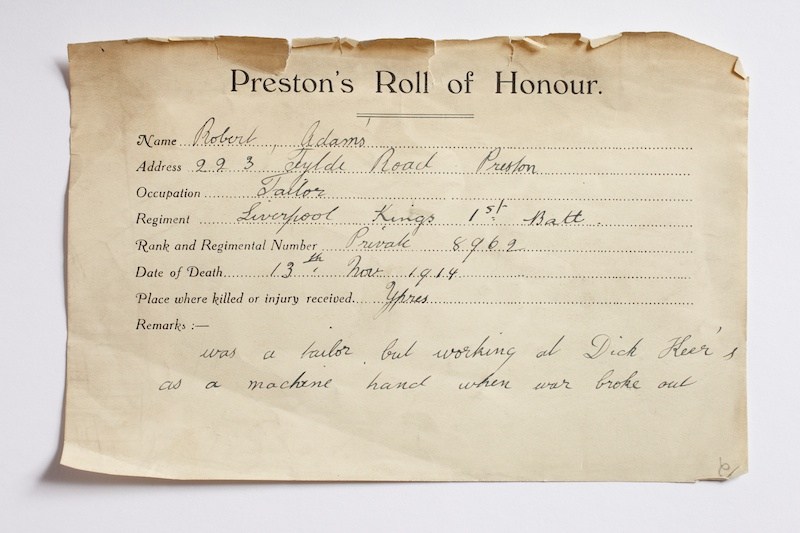 Preston's Roll of Honour.
Name Robert Adams
Address 223 Fylde Road Preston
Occupation Tailor
Regiment Liverpool Kings 1st Batt.
Rank and Regimental Number Private 8962
Date of Death 13th Nov. 1914
Place where killed or injury received Ypres
Remarks :—
was a tailor but working at Dick Keer's
as a machine hand when war broke out